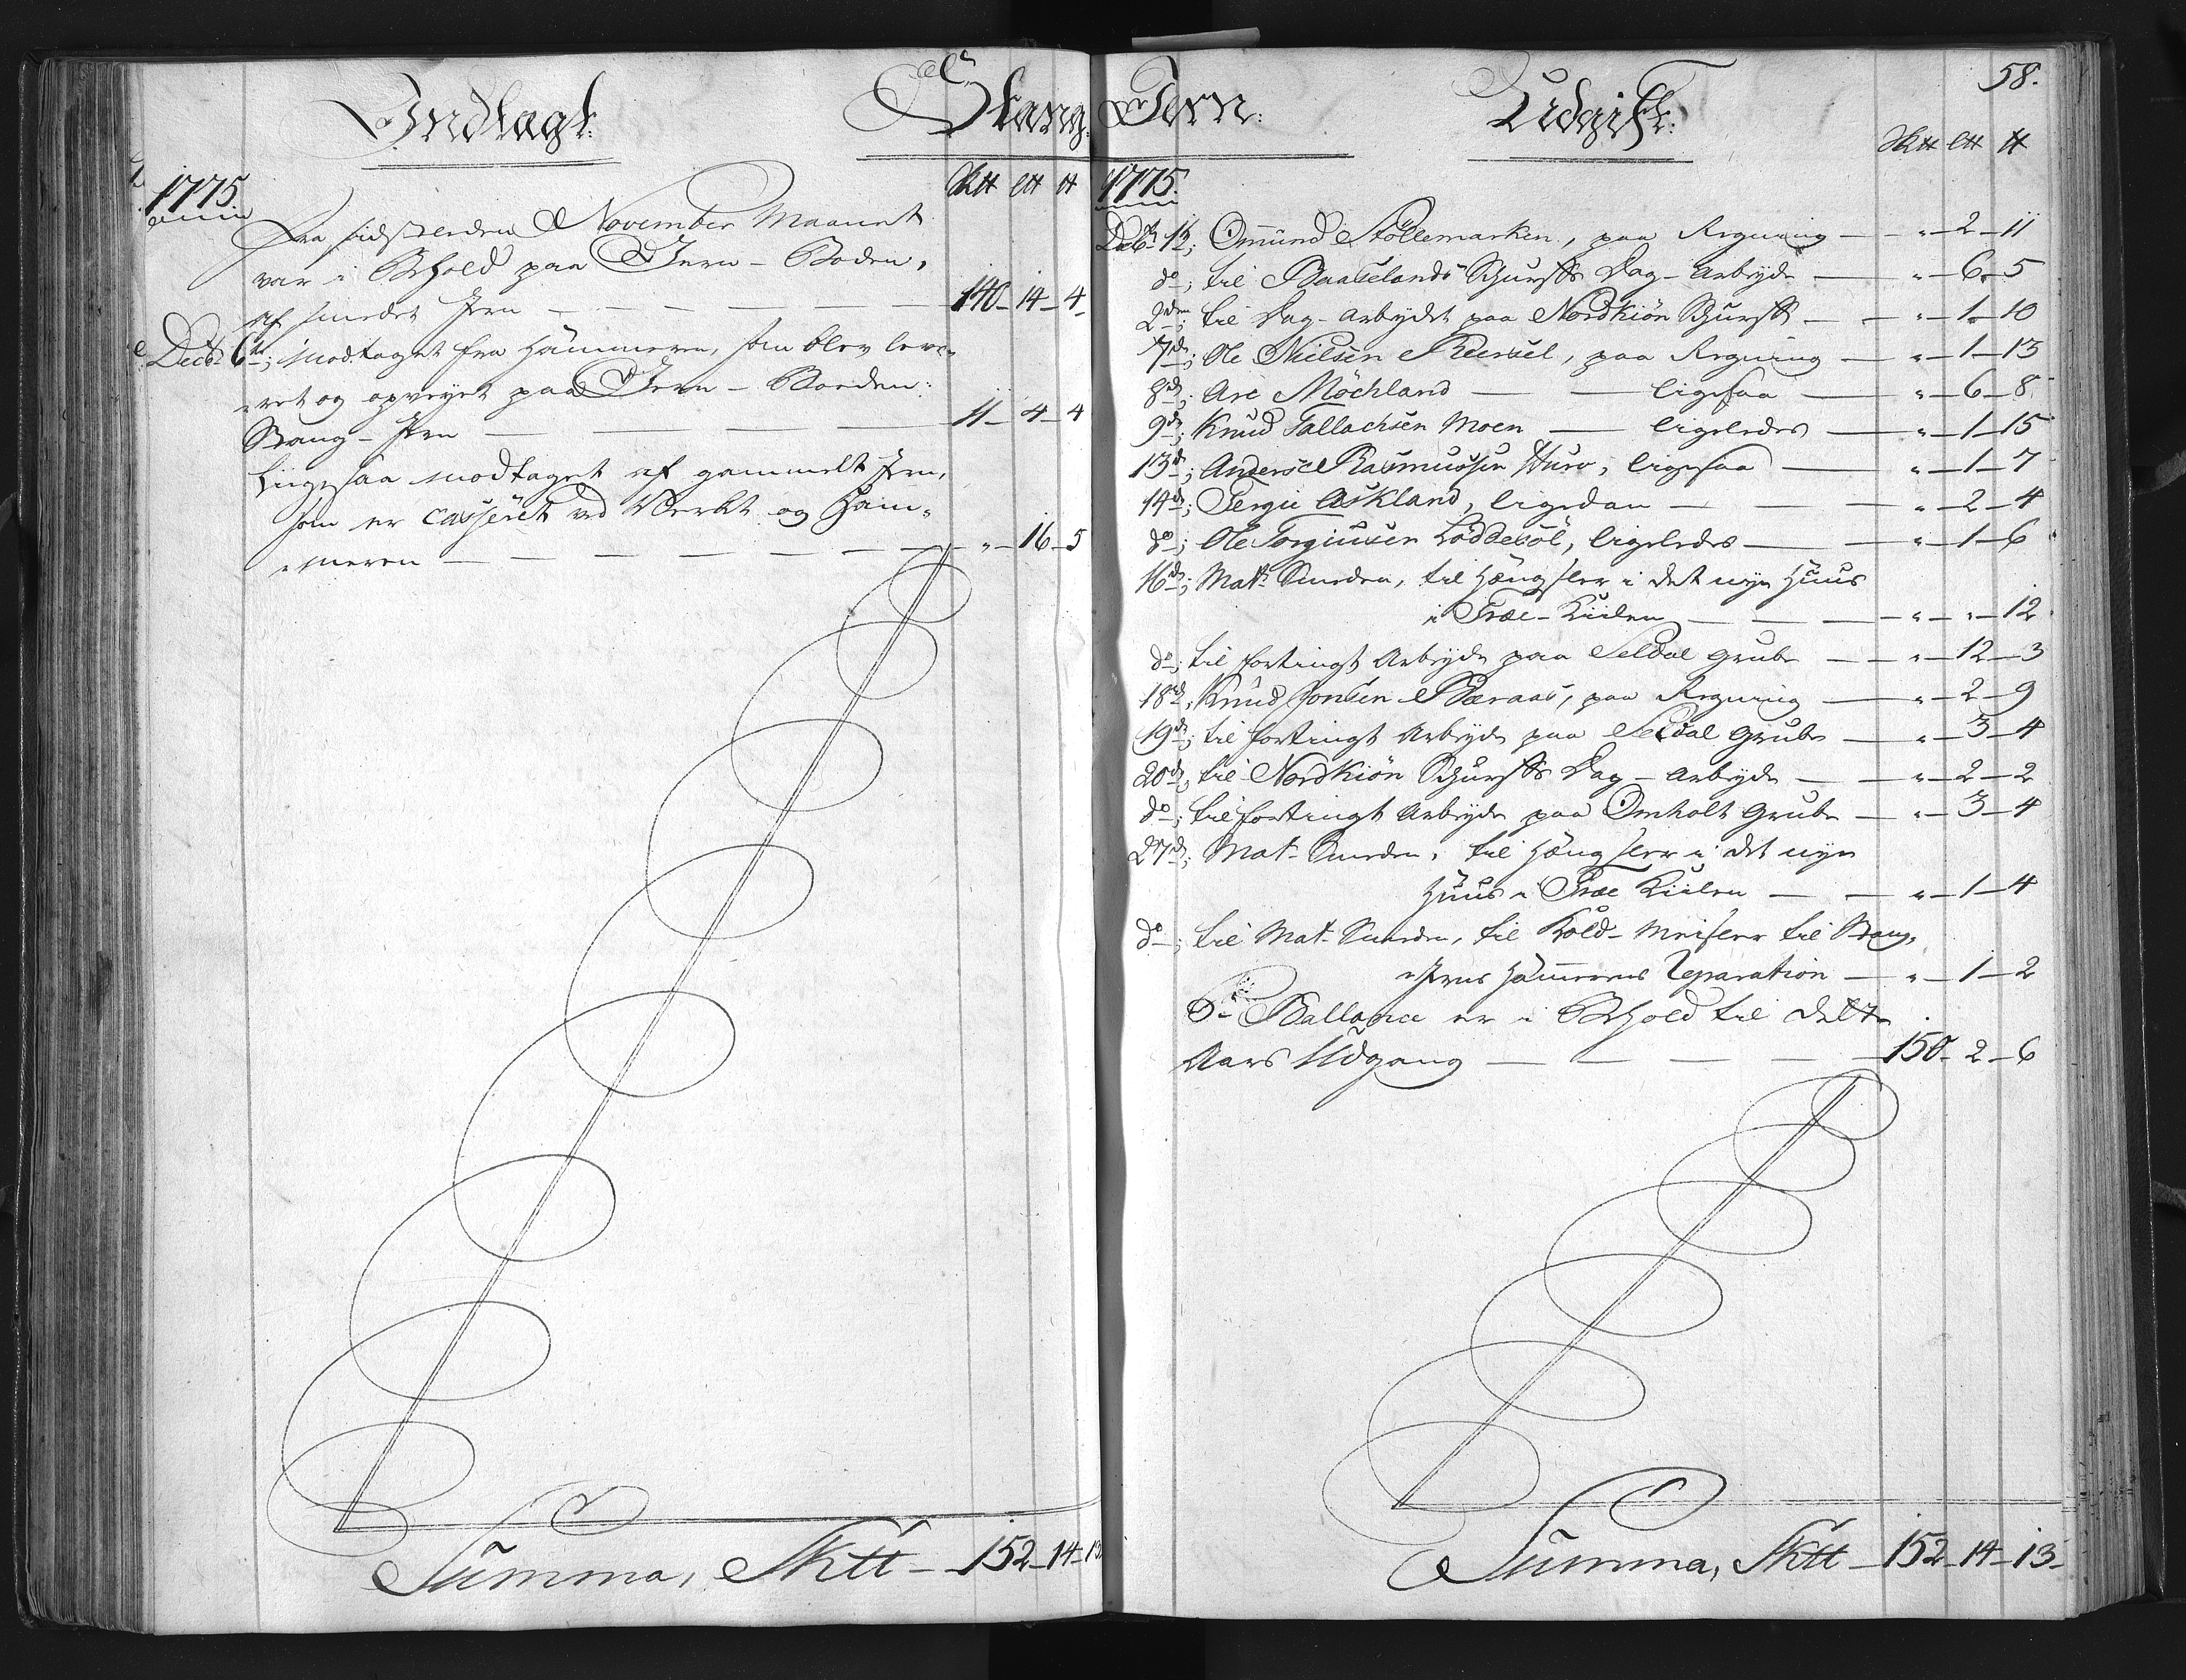 Indtagt:
Stang-
1775.
Sk℔ L℔ ℔
Fra sidstleeden November Maanet
var i Behold paa Jern-Boden,
af smedet Jern — 140 - 14 - 4
Decbr 6te; modtaget fra Hammeren, som blev leve-
-ret og opveyet paa Jern-Boeden:
Stang-Jern — 11 - 4 - 4
Liigesaa modtaget af gammelt Jern,
som er casseret ved Værket og Ham-
-meren — " - 16 - 5
Summa, Sk℔ - 152 - 14 - 13
Jern:
Udgift:
58.
Sk℔ L℔ ℔
1775.
Decbr 1te; Omund Stöllemarken, paa Regning — " - 2 - 11
do; til Baaselands Schurffs Dag-Arbeyde — " - 6 - 5
2den; til Dag-Arbeydet paa Nordkiön Schurff — " - 1 - 10
7de; Ole Nielsen Reersel, paa Regning — " - 1 - 13
8de; Are Möchland — ligesaa — " - 6 - 8
9de; Knud Tallachsen Moen — ligeledes — " - 1 - 15
13de; Anders Rasmussen Huso, ligesaa — " - 1 - 7
14de; Tergie Askland, ligedan — " - 2 - 4
do; Ole Torgiusen Löddesöl, ligeledes — " - 1 - 6
16de; Mats Smeden, til Hængsler i det nye Huus
i Træe-Kiilen — " - " - 12
do; til fortingt Arbeyde paa Seldal Grube — " - 12 - 3
18de; Knud Jonsen Bæraas, paa Regning — " - 2 - 9
19de; til fortingt Arbeyde paa Seldal Grube — " - 3 - 4
20de; til Nordkiön Schurffs Dag-Arbeyde — " - 2 - 2
do; til fortingt Arbeyde paa Omholt Grube — " - 3 - 4
27de; Mat- Smeden, til Hængsler i det nye
Huus i Træe Kiilen — " - 1 - 4
do; til Mat- Smeden, til Kold-Meisler til Stang-
-Jerns Hammerens Reparation — " - 1 - 2
Pr Ballance er i Behold til dette
Aars Udgang — 150 - 2 - 6
Summa, Sk℔ - 152 - 14 - 13